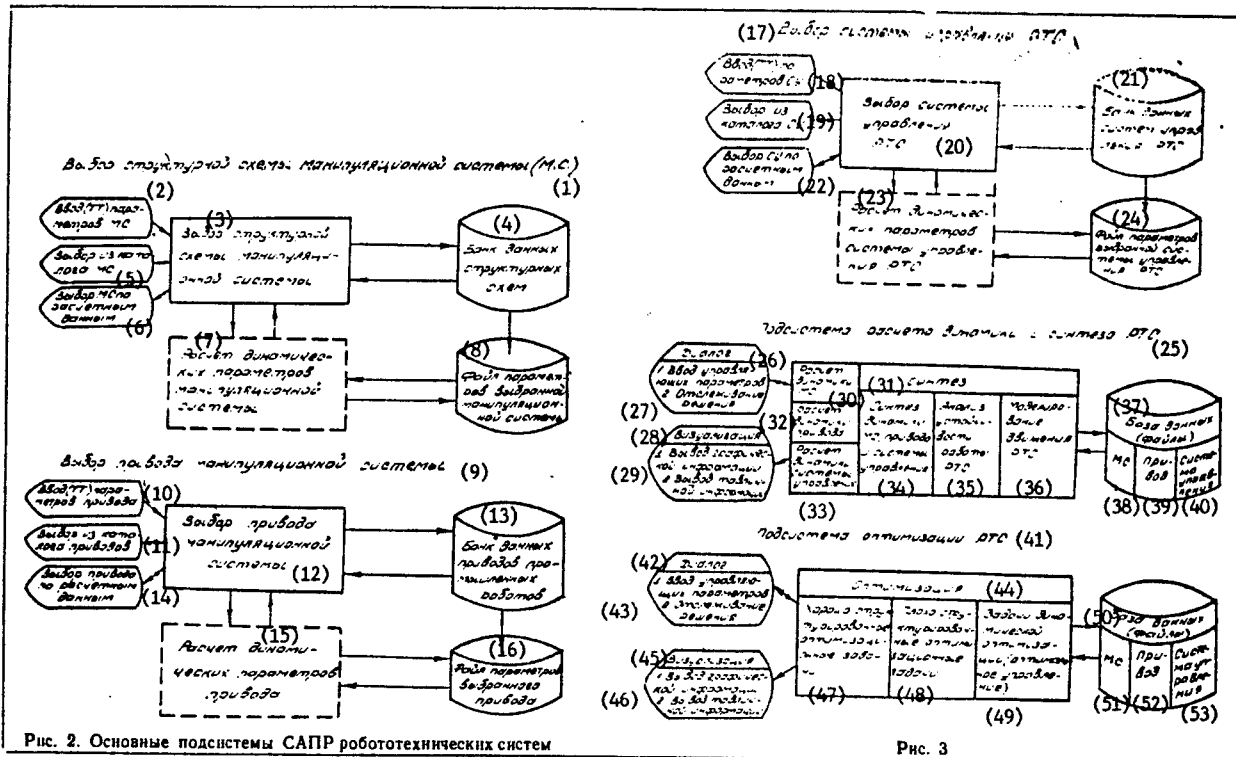 Выбор структурной схемы манипуляционной системы (М.С.)
(1)
(2)
Ввод (ТТ) пара-
метров МС
Выбор из ката
лога МС
(5)
Выбор МС по
расчетным
данным
(6)
(3)
Выбор структурной
схемы манипуляци-
онной системы
(4)
Банк данных
структурных
схем
(7)
Расчет динамичес-
ких параметров
манипуляционной
системы
(8)
Файл парамет-
ров выбранной
манипуляцион-
ной системы
Выбор привода манипуляционной системы (9)
Ввод (ТТ) пара-
метров привода
(10)
Выбор из ката
лога приводов
(11)
Выбор привода
по расчетным
данным
(14)
Выбор привода
манипуляционной
системы
(12)
(13)
Банк данных
приводов про-
мышленных
роботов
(15)
Расчет динами-
ческих параметров
привода
(16)
Файл параметров
выбранного
привода
Рис. 2. Основные подсистемы САПР робототехнических систем
(17) Выбор системы управления РТС
Ввод (ТТ) па
раметров СУ
(18)
Выбор из
каталога
(19)
Выбор СУ по
расчетным
данным
(22)
Выбор системы
управления
РТС
(20)
(21)
Банк данных
систем управ
ления РТС
(23)
Расчет динамичес-
ких параметров
системы управле-
ния РТС
(24)
Файл параметров
выбранной сис-
темы управле-
ния РТС
Подсистема расчета динамики и синтеза РТС
(25)
Диалог
(26)
1 Ввод управля-
ющих параметров
2 Отслеживание
решения
(27)
(28)
Визуализация
1 Вывод графичес-
кой информации
2 Вывод таблич-
ной информации
(29)
Расчет
динамики
МС
(30)
Расчет
динамики
привода
(32)
Расчет
динамики
системы
управления
(33)
(31)
Синтез
Синтез
динамики
МС, привода
и системы
управления
(34)
Анализ
устойчи-
вости
работы
РТС
(35)
Моделиро-
вание
движения
РТС
(36)
(37)
База данных
(файлы)
МС
При
вод
Систе
ма
управ
ления
(38) (39) (40)
Подсистема оптимизации РТС (41)
(42)
Диалог
1 Ввод управля-
ющих параметров
2 Отслеживание
решения
(43)
(45)
Визуализация
1 Вывод графичес-
кой информации
2 Вывод таблич-
ной информации
(46)
Оптимизация
(44)
Хорошо струк-
турированное
оптимизаци-
онные зада-
чи
(47)
Плохо стру
ктурирован-
ные оптими
зационные
задачи
(48)
Задачи дина-
мической
оптимиза-
ции (оптималь
ное управле-
ние)
(49)
(50)
База данных
(файлы)
МС
При
вод
Систе
ма уп
равле
ния
(51) (52) (53)
Рис. 3